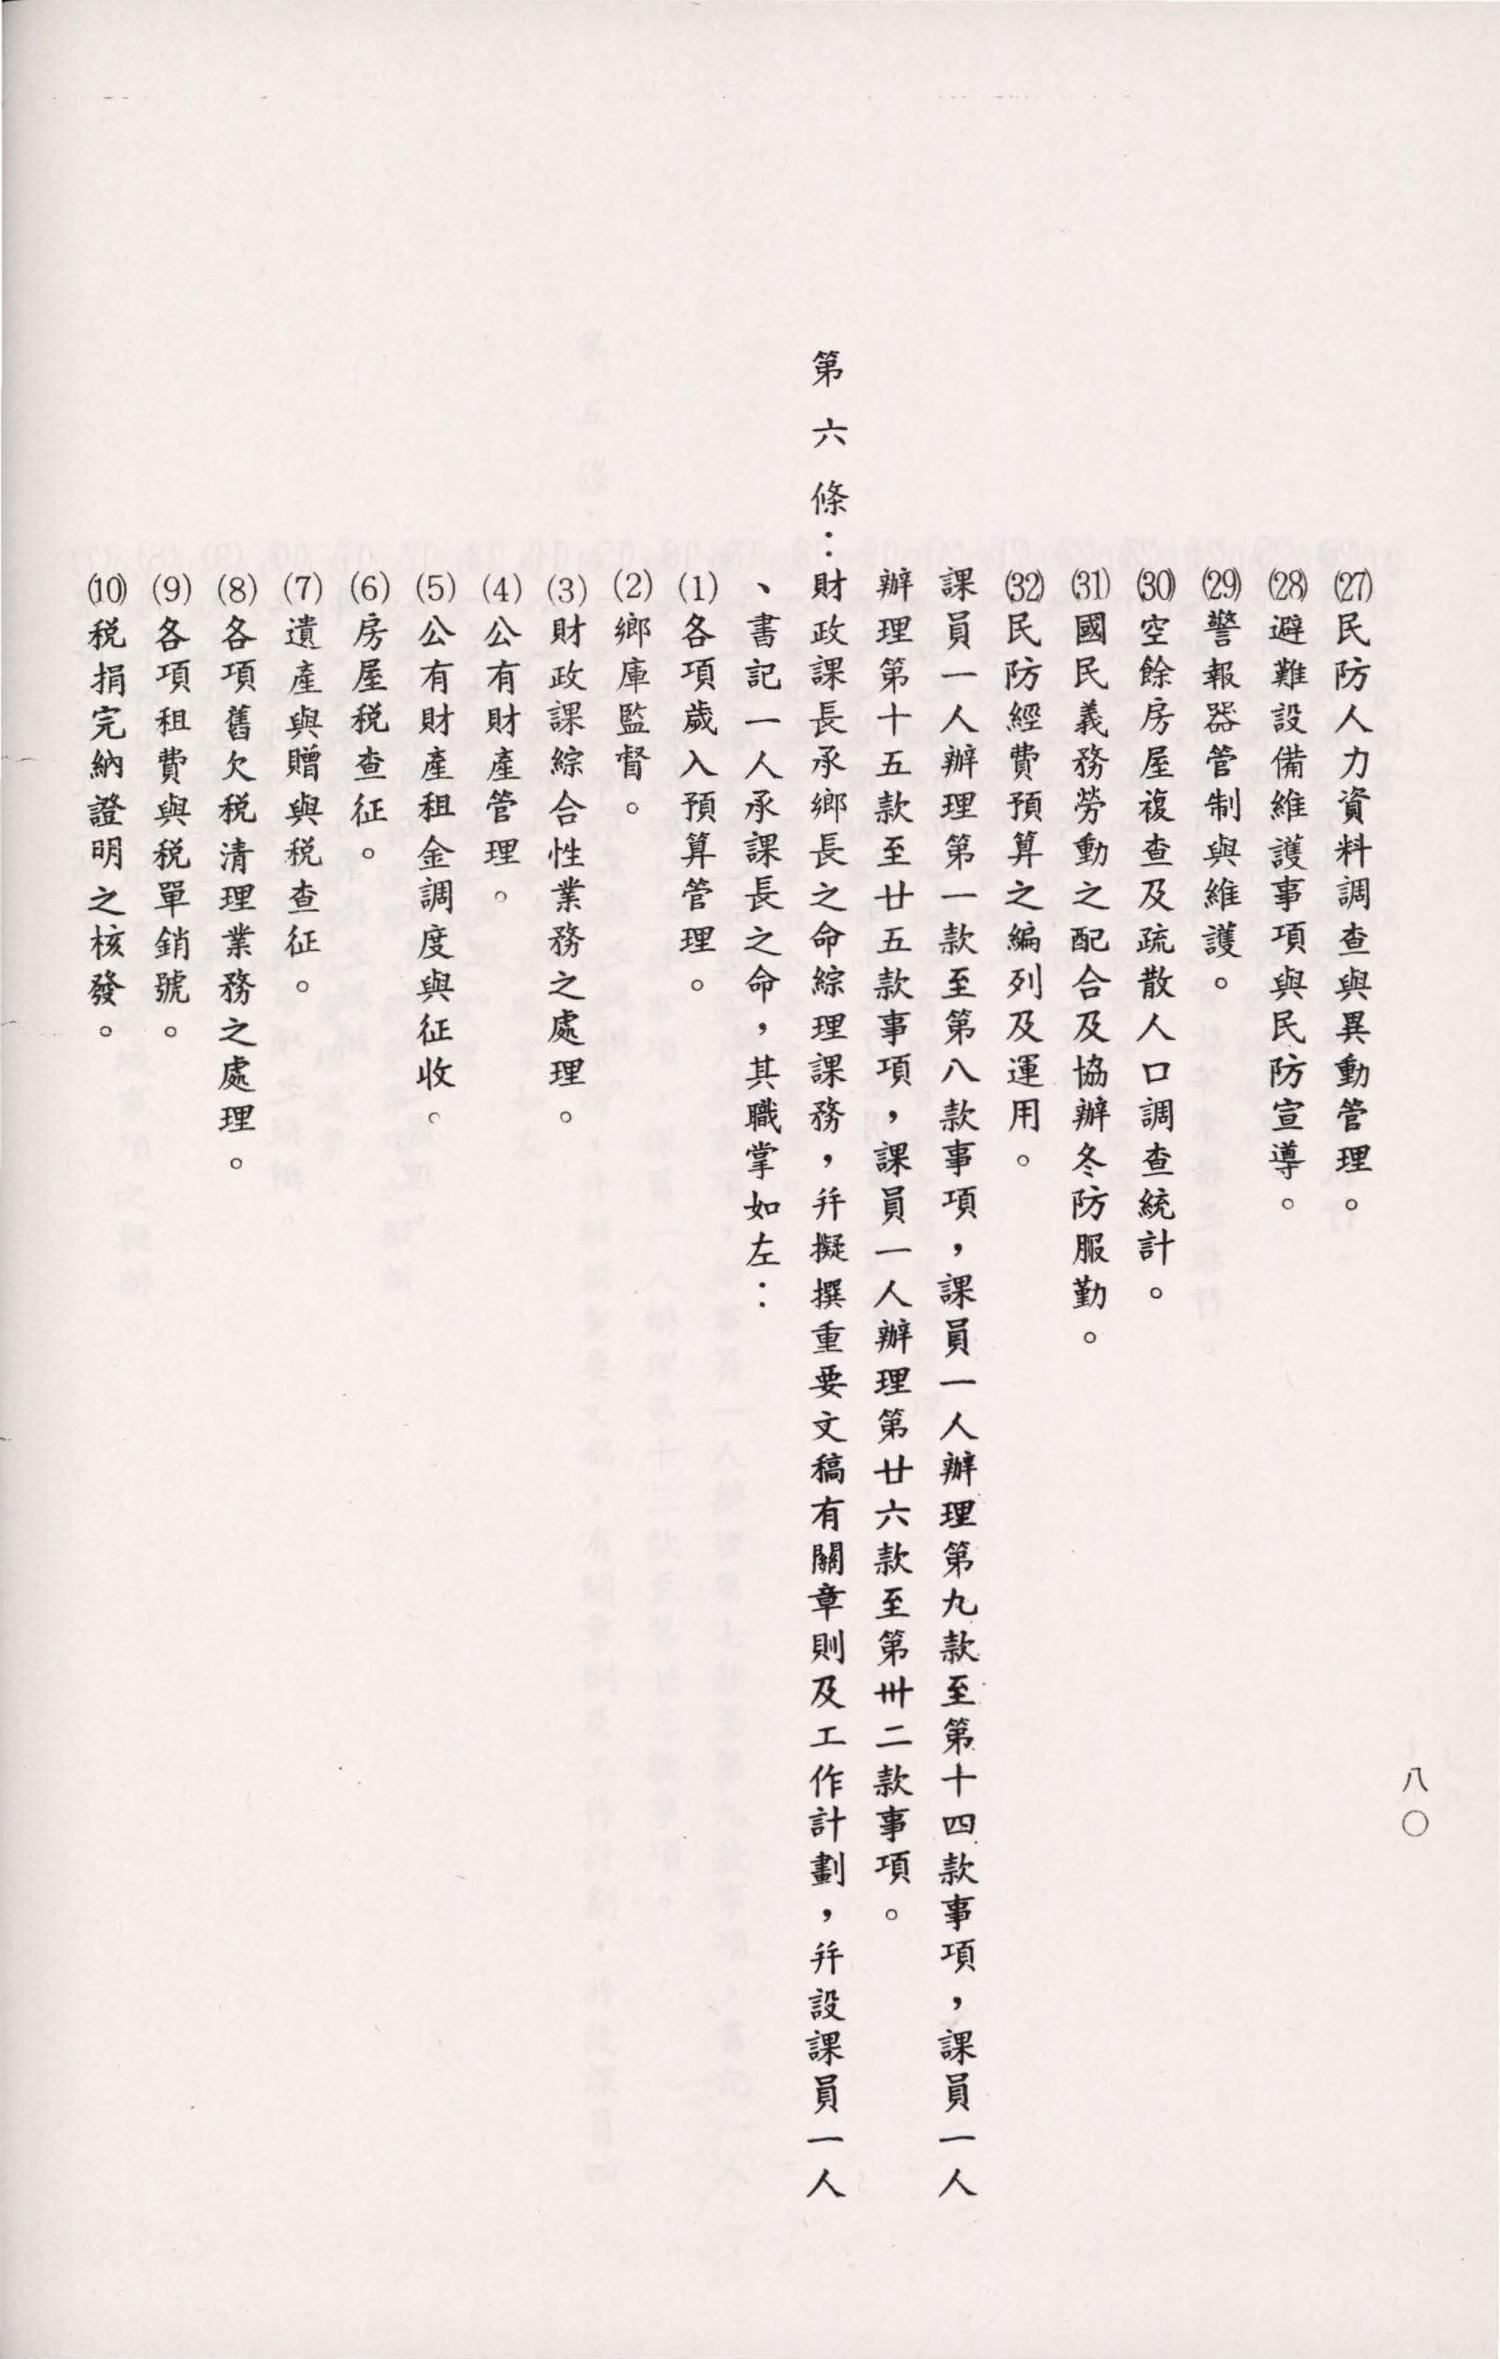 八〇
(27)民防人力資料調查與異動管理。
(28)避難設備維護事項與民防宣導。
(29)警報器管制與維護。
(30)空餘房屋複查及疏散人口調查統計。
(31)國民義務勞動之配合及協辦冬防服勤。
(32)民防經費預算之編列及運用。
課員一人辦理第一款至第八款事項，課員一人辦理第九款至第十四款事項，課員一人
辦理第十五款至廿五款事項，課員一人辦理第廿六款至第卅二款事項。
第六條：財政課長承鄉長之命綜理課務，并擬撰重要文稿有關章則及工作計劃，并設課員一人
、書記一人承課長之命，其職掌如左：
(1)各項歲入預算管理。
(2)鄉庫監督。
(3)財政課綜合性業務之處理。
(4)公有財產管理。
(5)公有財產租金調度與征收。
(6)房屋稅查征。
(7)遺產與贈與稅查征。
(8)各項舊欠稅清理業務之處理。
(9)各項租費與稅單銷號。
(10)稅捐完納證明之核發。